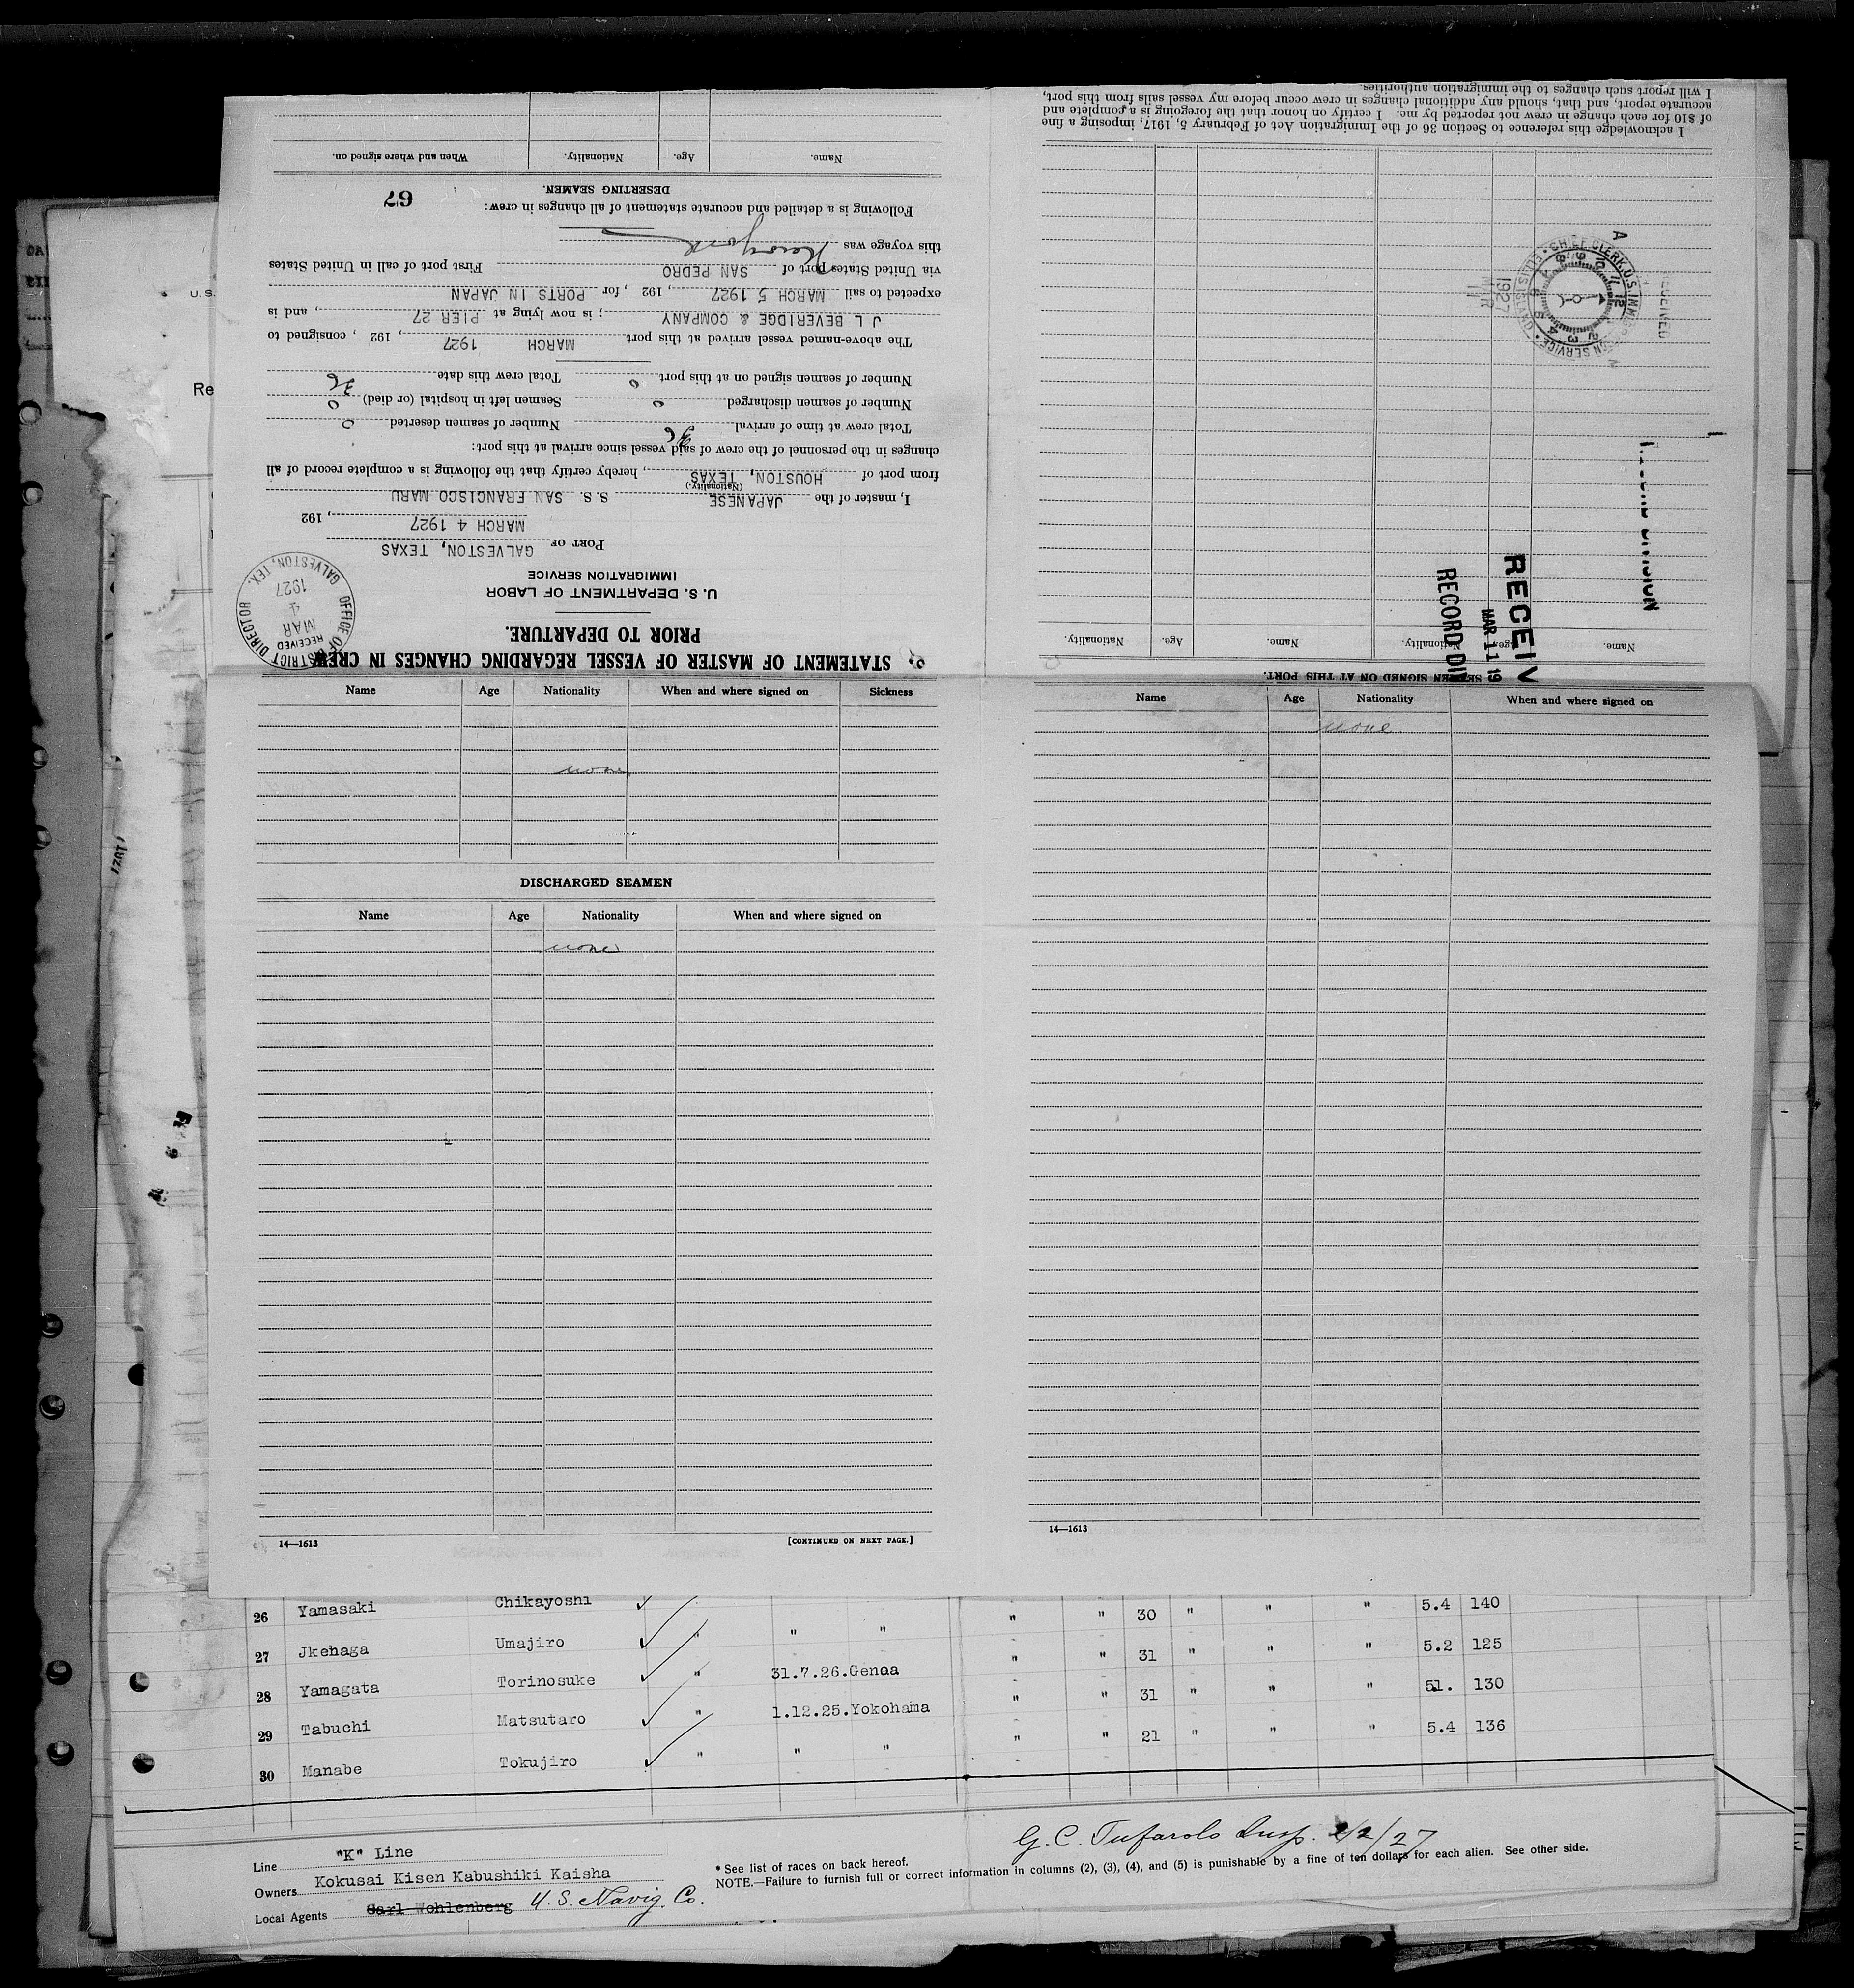 STATEMENT OF MASTER OF VESSEL REGARDING CHANGES IN CREW
PRIOR TO DEPARTURE.
U. S. DEPARTMENT OF LABOR
IMMIGRATION SERVICE
OFFICE OF DISTRICT DIRECTOR
RECEIVED
MAR
4
1927
GALVESTON, TEX.
PORT OF GALVESTON, TEXAS
MARCH 4 1927, 192
I, master of the JAPANESE S. S. SAN FRANCISCO MARU
(Nationality.)
from port of HOUSTON, TEXAS, hereby certify that the following is a complete record of all
changes in the personnel of the crew of said vessel since arrival at this port:
Total crew at time of arrival 36 Number of seamen deserted 0
Number of seamen discharged 0 Seamen left in hospital (or died) 0
Number of seamen signed on at this port 0 Total crew this date 36
The above-named vessel arrived at this port MARCH 1927, 192 , consigned to
J L BEVERIDGE & COMPANY; is now lying at PIER 27, and is
expected to sail MARCH 5 1927, 192 , for PORTS IN JAPAN
via United States port of SAN PEDRO First port of call in United States
this voyage was New York
Following is a detailed and accurate statement of all changes in crew:
67
DESERTING SEAMEN.
Name. Age. Nationality. When and where signed on.
SEAMEN SIGNED ON AT THIS PORT.
Name. Age. Nationality. Name. Age. Nationality.
RECEIV
MAR 11 19
RECORD DIV
RECEIVED
1927
MAR
11
CHIEF CLERK, U.S. IMMIGRATION SERVICE
ELLIS ISLAND
A
I acknowledge this reference to Section 36 of the Immigration Act of February 5, 1917, imposing a fine
of $10 for each change in crew not reported by me. I certify on honor that the foregoing is a complete and
accurate report, and that, should any additional changes in crew occur before my vessel sails from this port,
I will report such changes to the immigration authorities.
Name Age Nationality When and where signed on Sickness
none
DISCHARGED SEAMEN
Name Age Nationality When and where signed on
none
14—1613 [CONTINUED ON NEXT PAGE.]
Name Age Nationality When and where signed on
none
14—1613
U. S.
Re
26 Yamasaki Chikayoshi " " 30 " " " 5.4 140
27 Jkenaga Umajiro " " " " " 31 " " " 5.2 125
28 Yamagata Torinosuke " 31.7.26.Genoa " " 31 " " " 51. 130
29 Tabuchi Matsutaro " 1.12.25.Yokohama " " 21 " " " 5.4 136
30 Manabe Tokujiro " " "
Line "K" Line
Owners Kokusai Kisen Kabushiki Kaisha
Local Agents Carl Wohlenberg U. S. Navig. Co.
G. C. Tufarolo Insp. 2/2/27
* See list of races on back hereof.
NOTE.—Failure to furnish full or correct information in columns (2), (3), (4), and (5) is punishable by a fine of ten dollars for each alien. See other side.